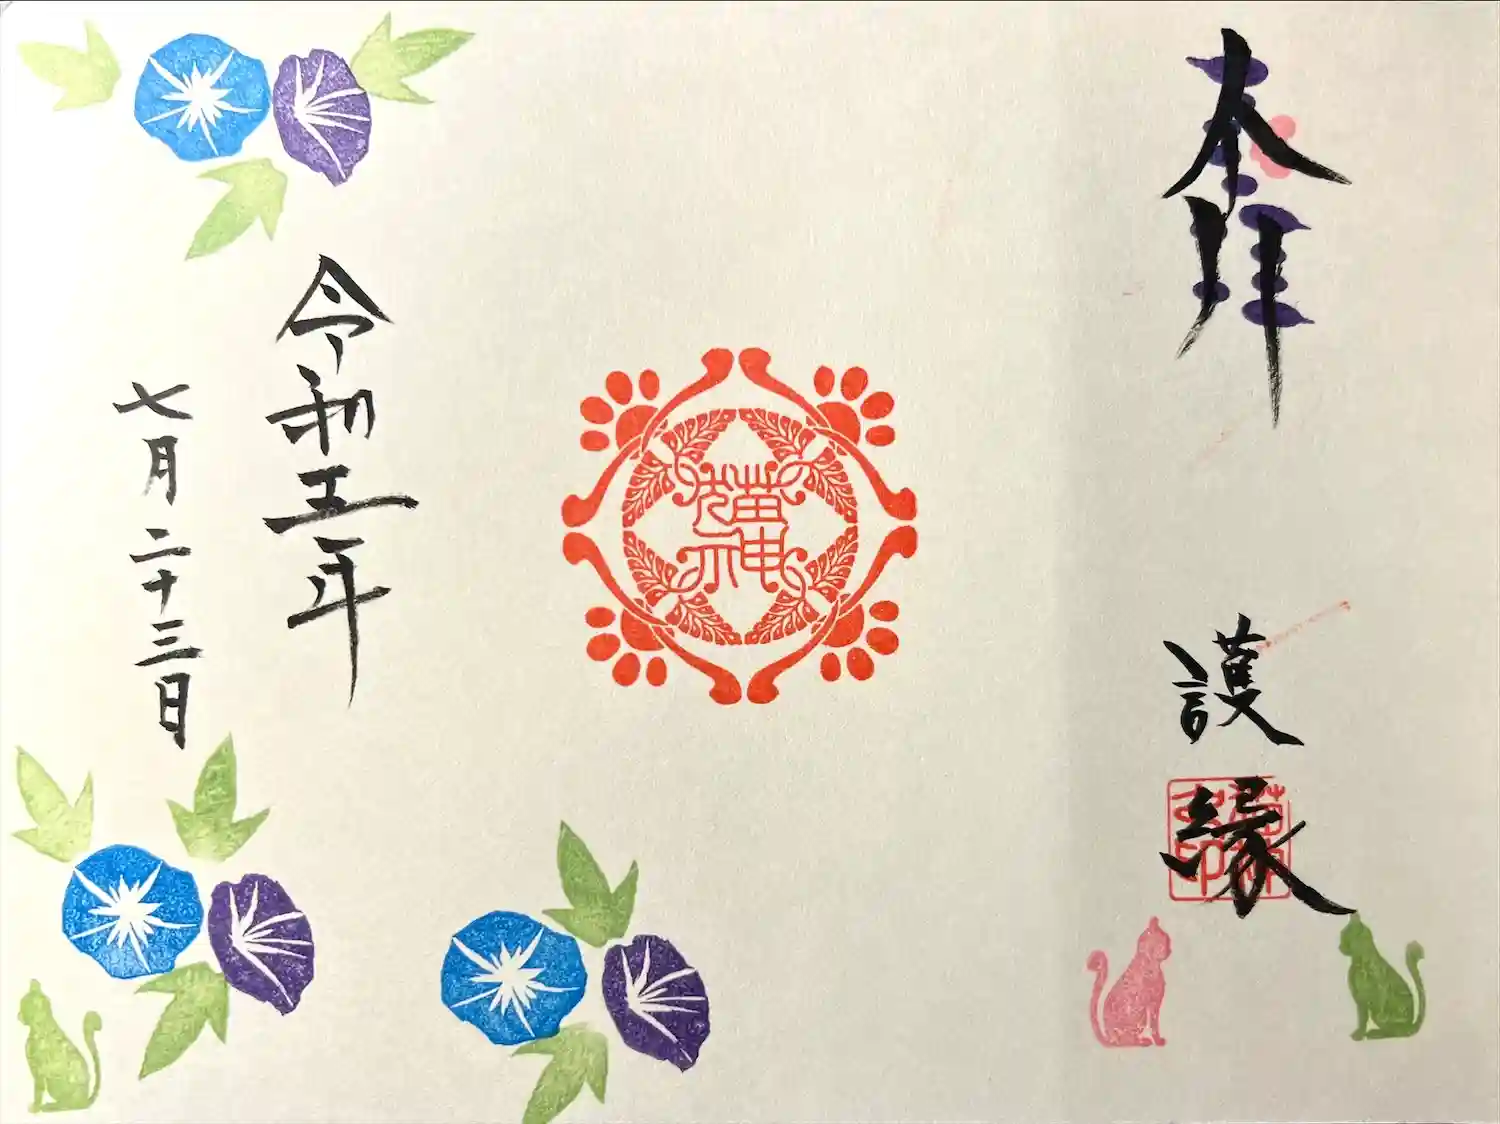 奉拝
護縁
猫
神
令和五年
七月二十三日